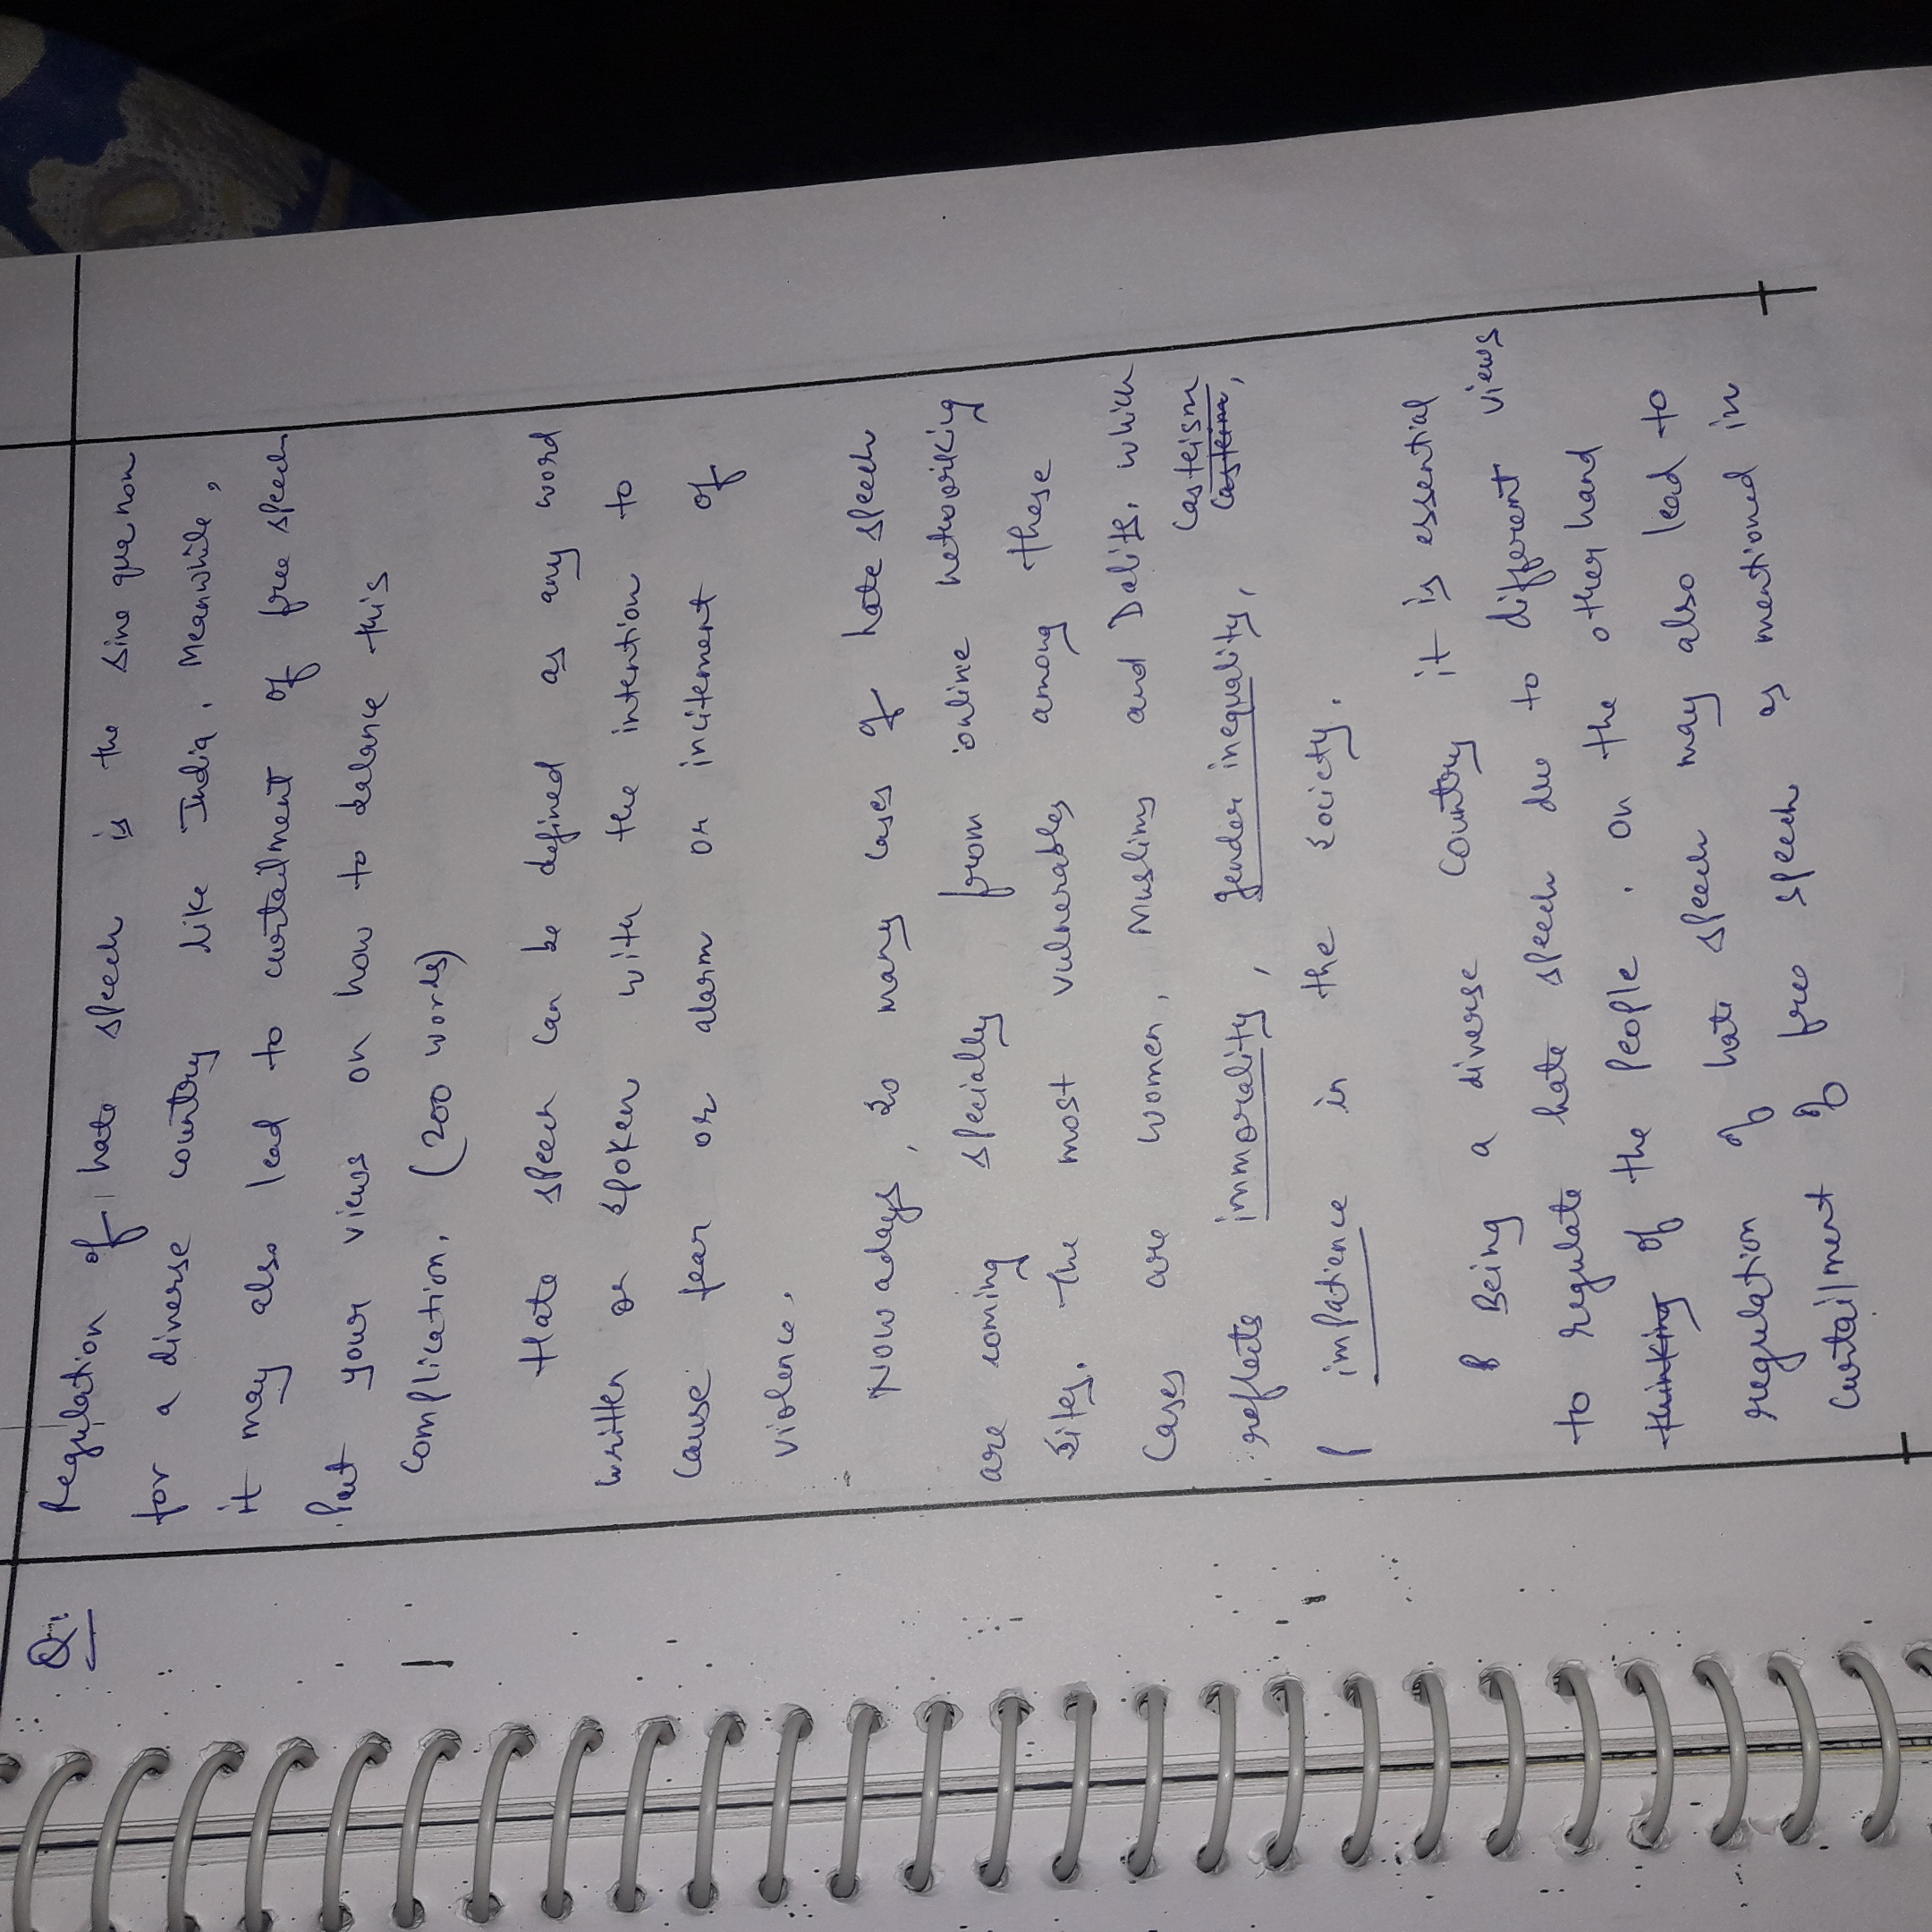 Q1
Regulation of hate speech is the sine qua non
for a diverse country like India. Meanwhile,
it may also lead to curtailment of free speech
Put your views on how to balance this
complication. (200 words)
Hate speech can be defined as any word
written or spoken with the intention to
cause fear or alarm or incitement of
violence.
Now adays, so many cases of hate speech
are coming specially from online networking
sites. The most vulnerables among these
cases are women, Muslims and Dalits, which
reflects immorality, gender inequality, casteism
impatience in the society.
Being a diverse country it is essential
to regulate hate speech due to different views
thinking of the people. On the other hand
regulation of hate speech may also lead to
curtailment of free speech as mentioned in